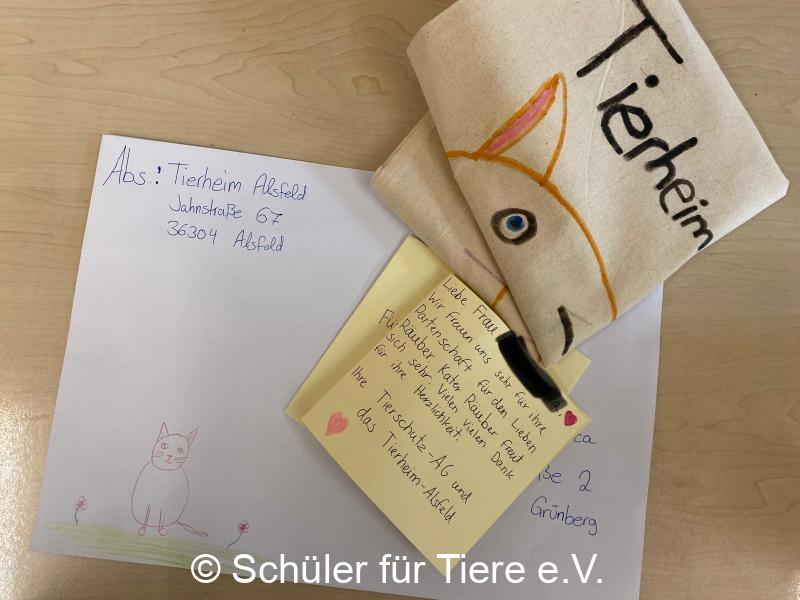 Tierheim
Abs.: Tierheim Alsfeld
Jahnstraße 67
36304 Alsfeld
Liebe Frau
Wir freuen uns sehr für ihre
Patenschaft für den Lieben
Räuber. Kater Räuber freut
sich sehr. Vielen vielen Dank
für ihre Herzlichkeit.
Ihre Tierschutz-AG und
das Tierheim-Alsfeld
2
Grünberg
© Schüler für Tiere e.V.